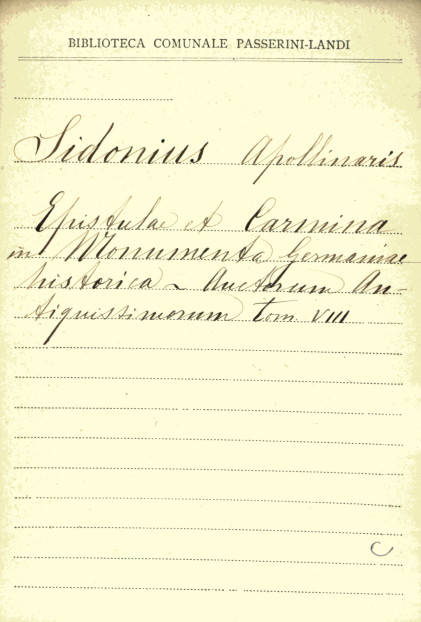 BIBLIOTECA COMUNALE PASSERINI-LANDI
Sidonius Apollinaris
Epistulae et Carmina
in Monumenta Germaniae
historica ~ Auctorum An-
tiquissimorum Tom. VIII
C